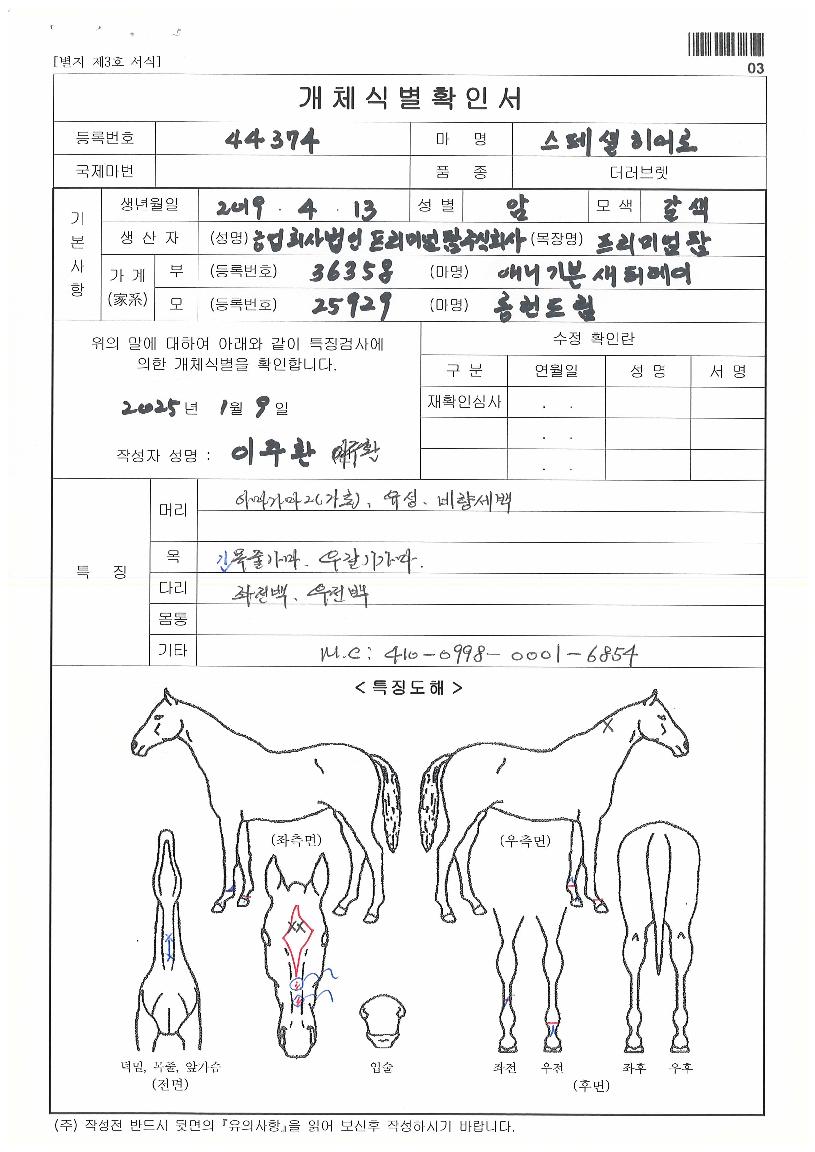 [별지 제3호 서식]
03
개체식별확인서
등록번호 44374 마 명 스페셜히어로
국제마번 품 종 더러브렛
기본사항
생년월일 2019 . 4 . 13 성 별 암 모 색 갈색
생 산 자 (성명) 농업회사법인 프리미엄팜주식회사 (목장명) 프리미엄팜
가 계 (家系)
부 (등록번호) 36358 (마명) 애니기븐새터데이
모 (등록번호) 25929 (마명)
위의 말에 대하여 아래와 같이 특징검사에
의한 개체식별을 확인합니다.
2025 년 1 월 9 일
작성자 성명 : 이주환 이주환
수정 확인란
구 분 연월일 성 명 서 명
재확인심사 . .
. .
. .
특 징
머리 이마가마2(가로), 유성, 비량세백
목 긴목줄가마, 우갈기가마.
다리 좌전백, 우전백
몸통
기타 M.C: 410-0998-0001-6854
< 특징도해 >
(좌측면) (우측면)
턱밑, 목줄, 앞가슴
(전면)
입술
좌전 우전 좌후 우후
(후면)
(주) 작성전 반드시 뒷면의 『유의사항』을 읽어 보신후 작성하시기 바랍니다.